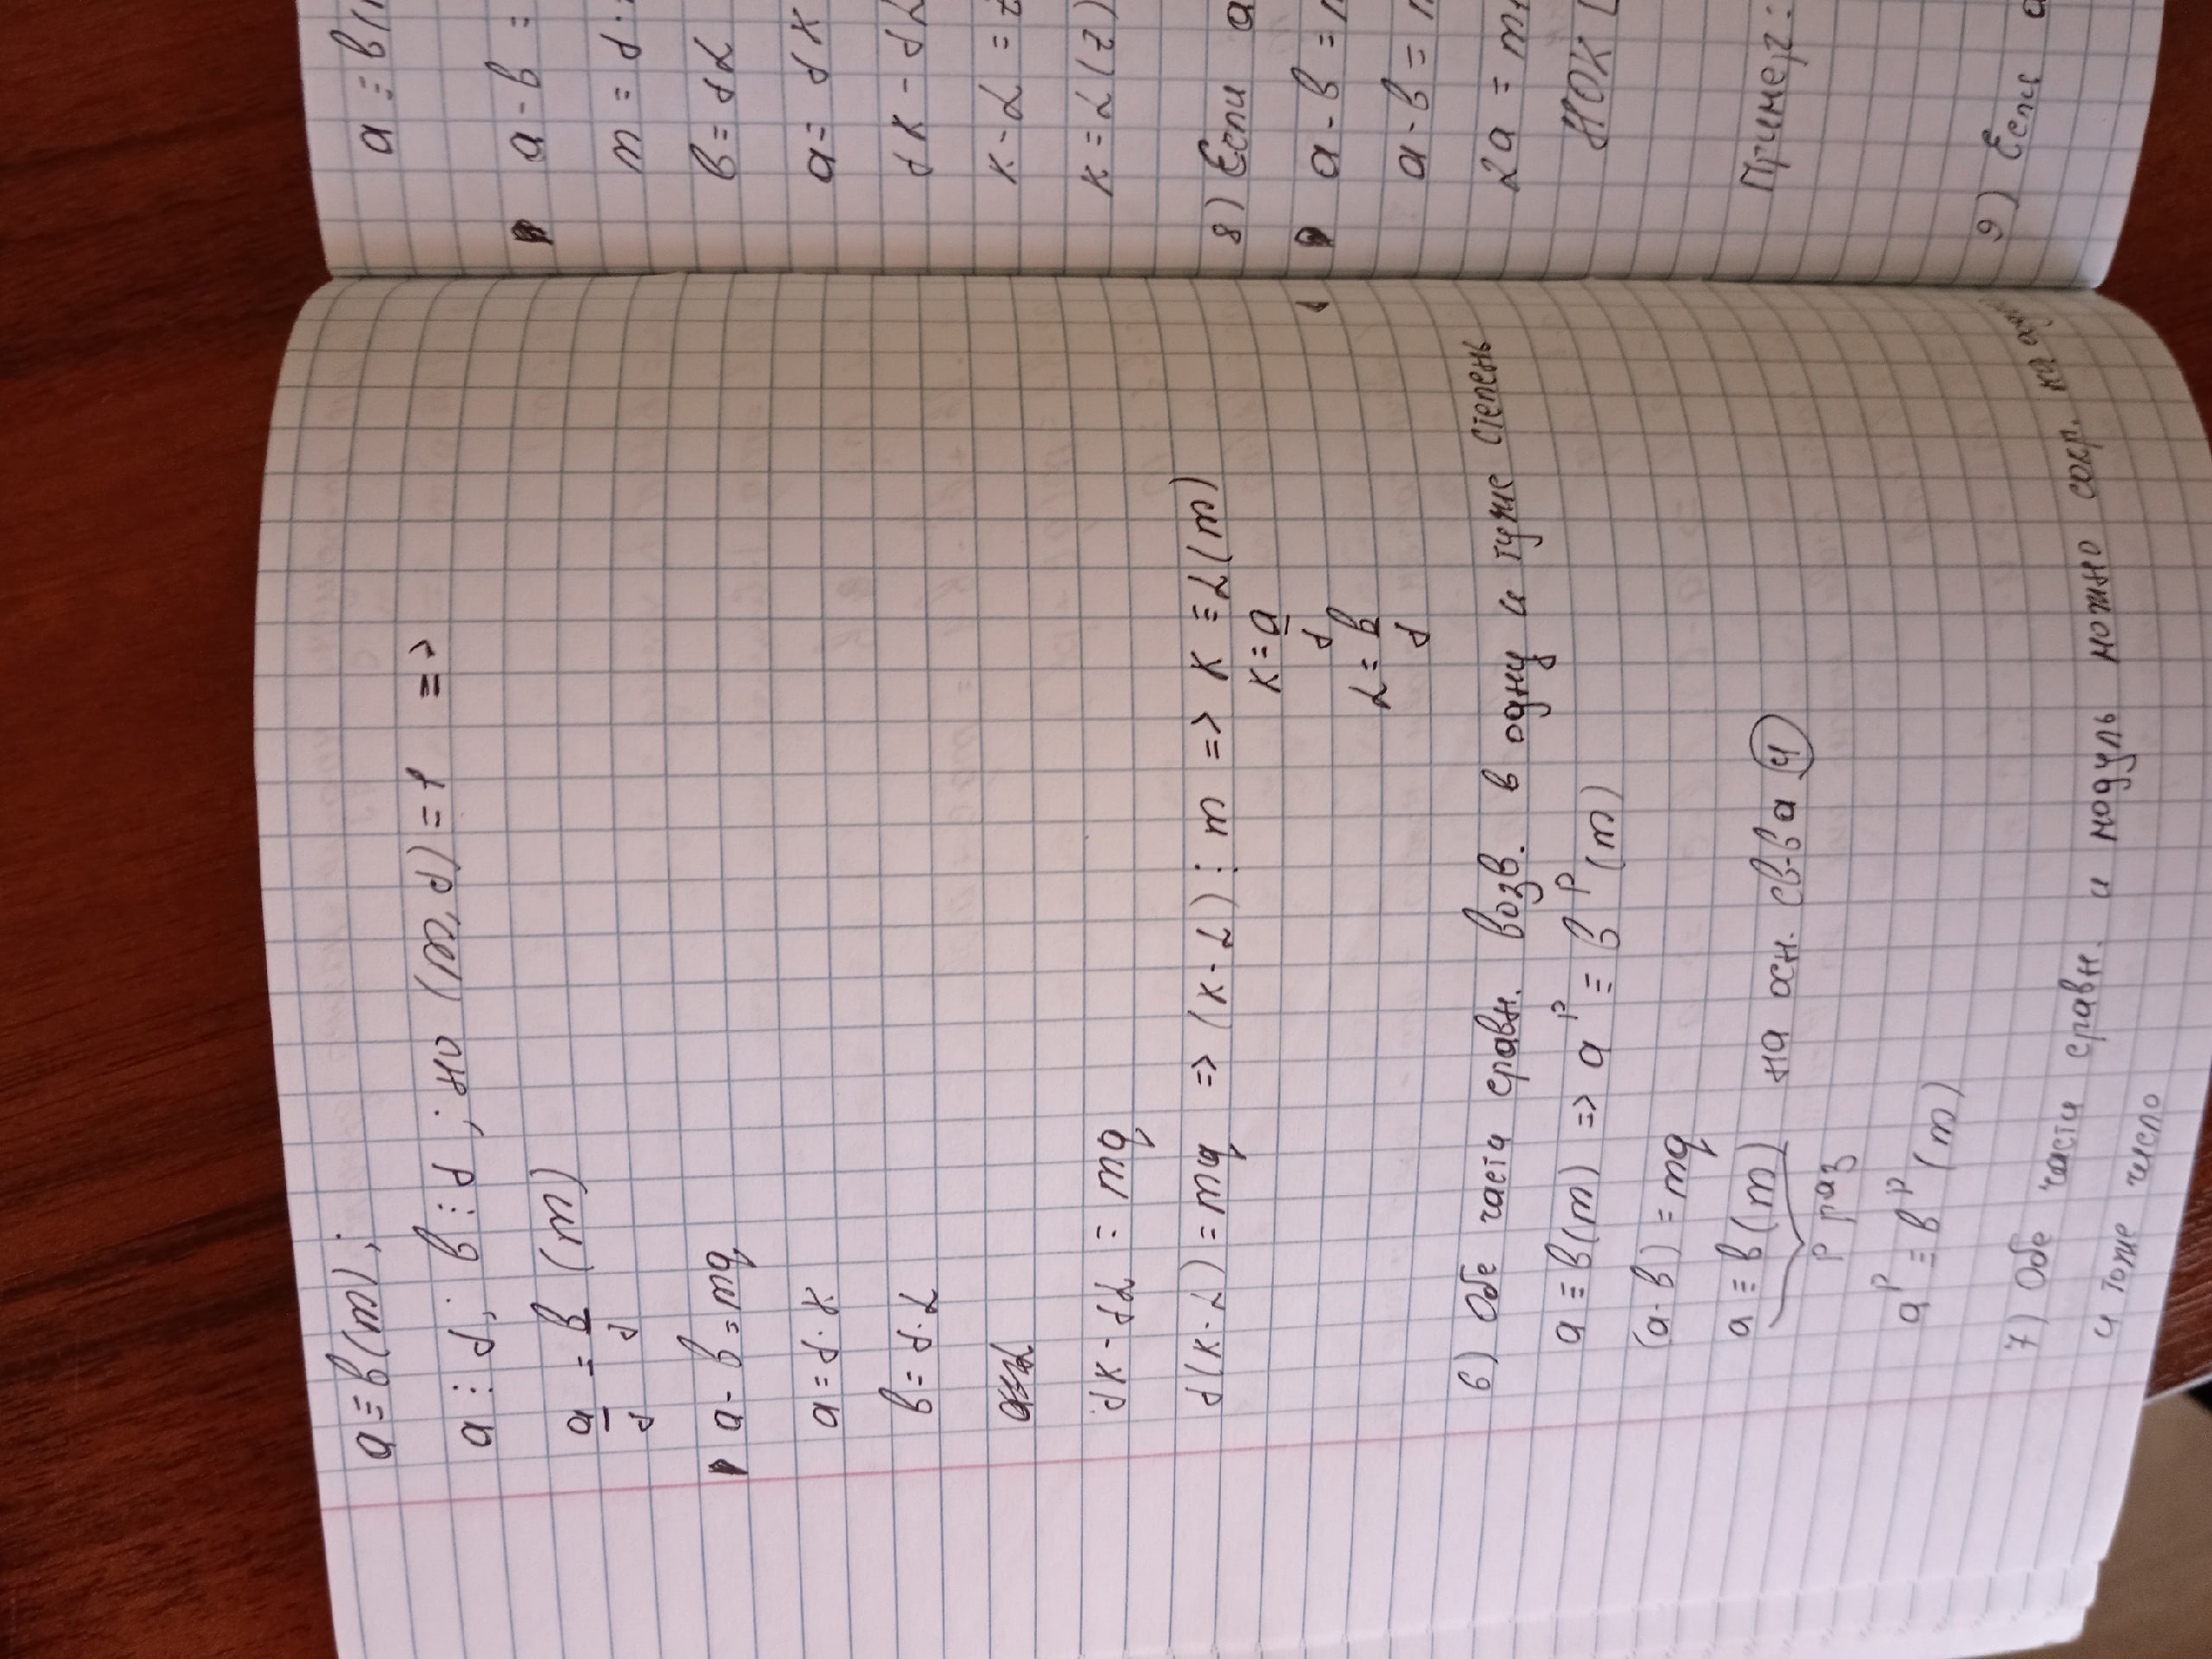 a ≡ в(m);
a ⋮ d; в ⋮ d; но (m, d) = 1 =>
a/d = в/d (m)
a - в = mq
a = d · k
в = d · L
dk - dL = mq
d(k - L) = mq => (k - L) ⋮ m => k ≡ L(m)
k = a/d
L = в/d
6) Обе части сравн. возв. в одну и туже степень
a ≡ в(m) => a^p ≡ в^p (m)
(a - в) = mq
a ≡ в(m) на осн. св-ва 4
p раз
a^p ≡ в^p (m)
7) Обе части сравн. и модуль можно сокр. на одно
и тоже число
a ≡ в(
a - в =
m = d ·
в = dL
a = dk
dk - dL
k - L = z
k = L(z)
8) Если a
a - в =
a - в =
2a = m
НОК [
Пример:
9) Если a